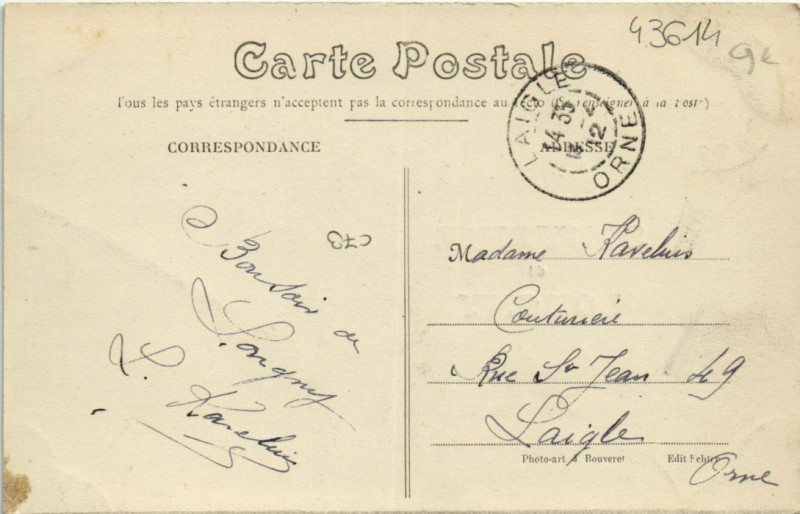 43614
9e
Carte Postale
Tous les pays étrangers n'acceptent pas la correspondance au (se renseigner à la Poste)
CORRESPONDANCE
ADRESSE
LAIGLE
14 35
12
ORNE
C73
Bonsoir de
Longny
Madame
Couturière
Rue St Jean 49
Laigle
Orne
Photo-art. Bouveret
Edit